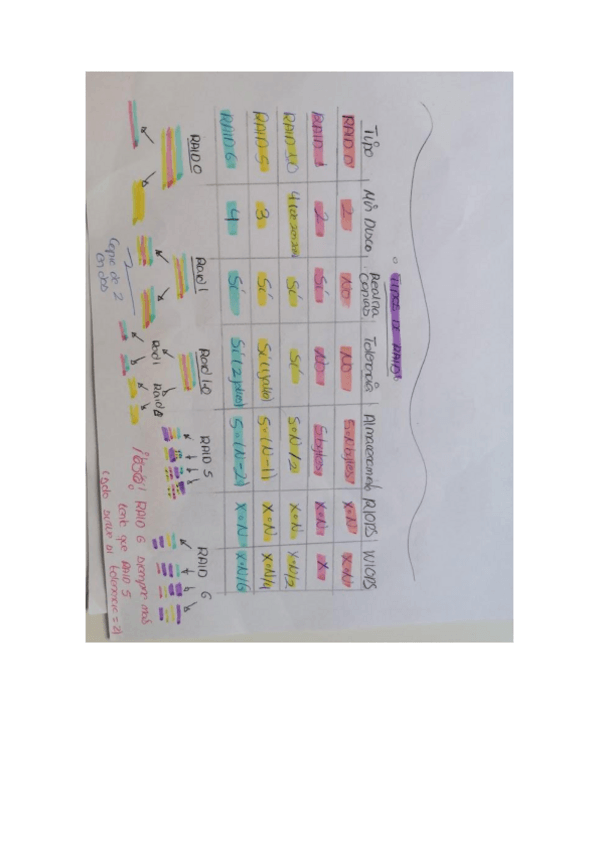 TIPOS DE RAID
Tipo Min Discos Realiza Copias Tolerancia Almacenamiento RIOPS WIOPS
RAID 0 2 No NO S∘N bytes X∘N X∘N
RAID 1 2 Sí NO S bytes X∘N X
RAID 10 4 Sí Sí S∘N/2 X∘N X∘N/2
RAID 5 3 Sí Sí (1 fallo) S∘(N-1) X∘N X∘N/4
RAID 6 4 Sí Sí (2 fallos) S∘(N-2) X∘N X∘N/6
RAID 0 Raid 1 Raid 1-0 RAID 5 RAID 6
Raid 1 Raid 0
Copia de 2
en dos
RAID 6 siempre más
lento que RAID 5
tolerancia = 2)